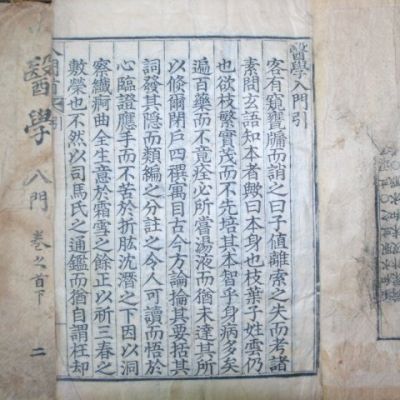 醫學入門引
客有窺甕牖而誚之曰子値離索之失而耆諸
素問玄語知本者歟曰本身也枝葉子姓雲仍
也欲枝繁實茂而不先培其本智乎身病多矣
遍百藥而不竟痊必所嘗湯液而猶未達其所
以倏爾閉戶四禩寓目古今方論掄其要括其
詞發其隱而類編之分註之令人可讀而悟於
心臨證應手而不苦於折肱沈潛之下因以洞
察纖痾曲全生意於霜雪之餘正以祈三春之
敷榮也不然以司馬氏之通鑑而猶自謂枉却
醫學入門 卷之首下 二